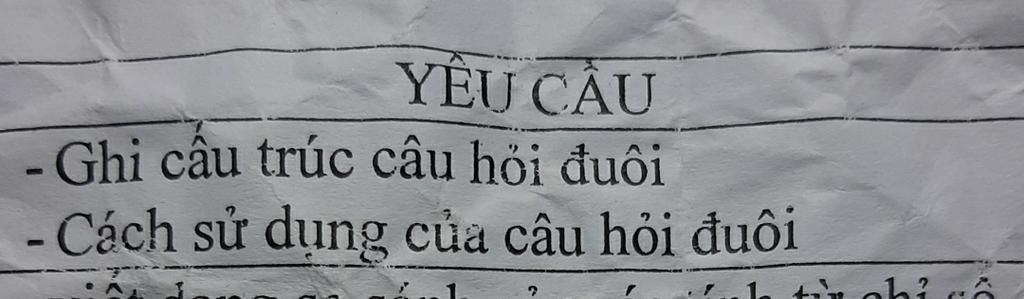 YÊU CẦU
- Ghi cấu trúc câu hỏi đuôi
- Cách sử dụng của câu hỏi đuôi